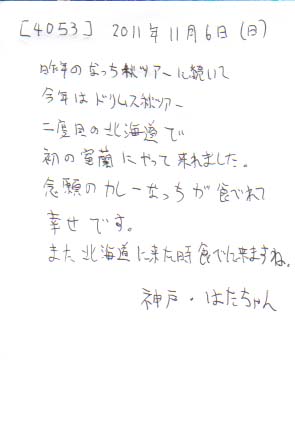 [4053] 2011年11月6日(日)
昨年のなっち秋ツアーに続いて
今年はドリムス秋ツアー
二度目の北海道で
初の室蘭にやって来れました。
念願のカレーなっちが食べれて
幸せです。
また北海道に来た時食べに来ますね。
神戸・はたちゃん